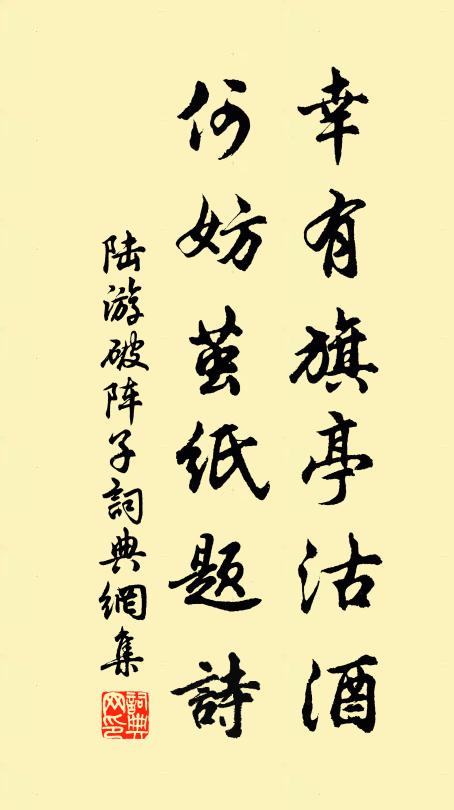 幸有旗亭沽酒
何妨茧纸题詩
陆游破阵子詞典網集
詞典网印